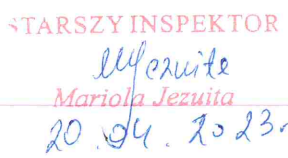 STARSZY INSPEKTOR
MJezuita
Mariola Jezuita
20.04.2023.